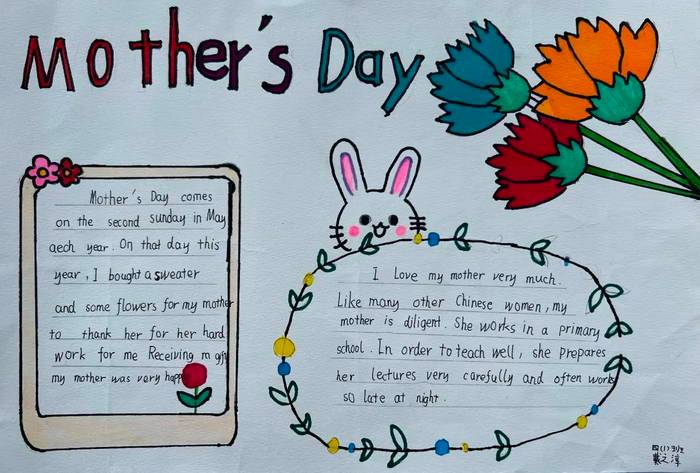 Mother's Day
Mother's Day comes
on the second sunday in May
aech year. On that day this
year, I bought a sweater
and some flowers for my mother
to thank her for her hard
work for me Receiving m gift
my mother was very happ
I Love my mother very much.
Like many other Chinese women, my
mother is diligent. She works in a primary
school. In order to teach well, she prepares
her lectures very carefully and often works
so late at night.
四(1)